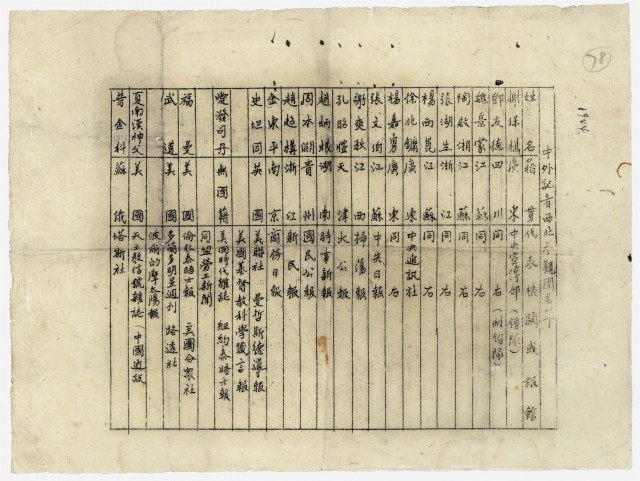 中外記者西北參觀團名單
姓名 籍貫 代表機關或報館
謝保樵 廣東 中央宣傳部（領隊）
鄧友德 四川 同右（副領隊）
魏景蒙 浙江 同右
陶啟湘 江蘇 同右
張湖生 浙江 同右
楊西崑 江蘇 同右
徐兆鏞 廣東 中央通訊社
楊嘉勇 廣東 同右
張文伯 江蘇 中央日報
謝爽秋 江西 掃蕩報
孔昭愷 天津 大公報
趙炳烺 湖南 時事新報
周本淵 貴州 國民公報
趙超構 浙江 新民報
金東平 南京 商務日報
史坦因 英國 美聯社 曼哲斯德導報
美國基督教科學箴言報
愛潑司丹 無國籍 美國時代雜誌 紐約泰晤士報
同盟勞工新聞
福曼 美國 倫敦泰晤報 美國合眾社
武道 美國 多倫多明星週刊 路透社
波爾的摩太陽報
夏南漢神父 美國 天主教信號雜誌（中國通訊
普金科 蘇俄 塔斯社
78
1944